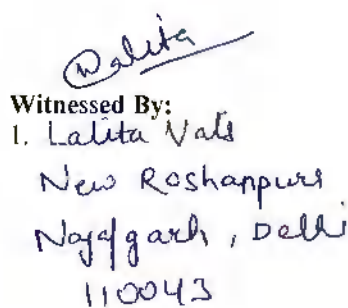 Lalita
Witnessed By:
1. Lalita Vats
New Roshanpura
Najafgarh, Delhi
110043